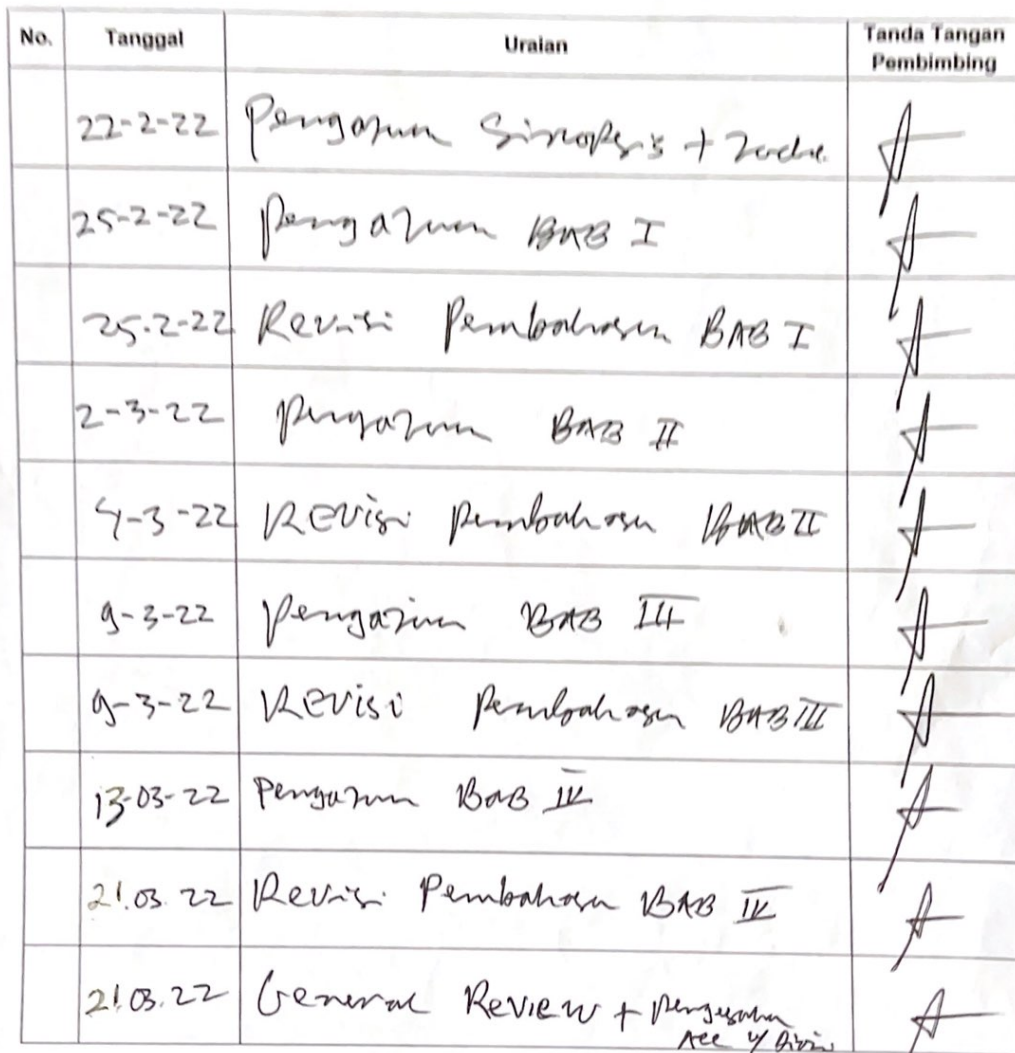 No. Tanggal Uraian Tanda Tangan Pembimbing
22-2-22 Pengajuan Sinopsis +
25-2-22 Pengajuan BAB I
25-2-22 Revisi Pembahasan BAB I
2-3-22 Pengajuan BAB II
4-3-22 Revisi Pembahasan BAB II
9-3-22 Pengajuan BAB III
9-3-22 Revisi Pembahasan BAB III
13-03-22 Pengajuan BAB IV
21.03.22 Revisi Pembahasan BAB IV
21.03.22 General Review +
Acc